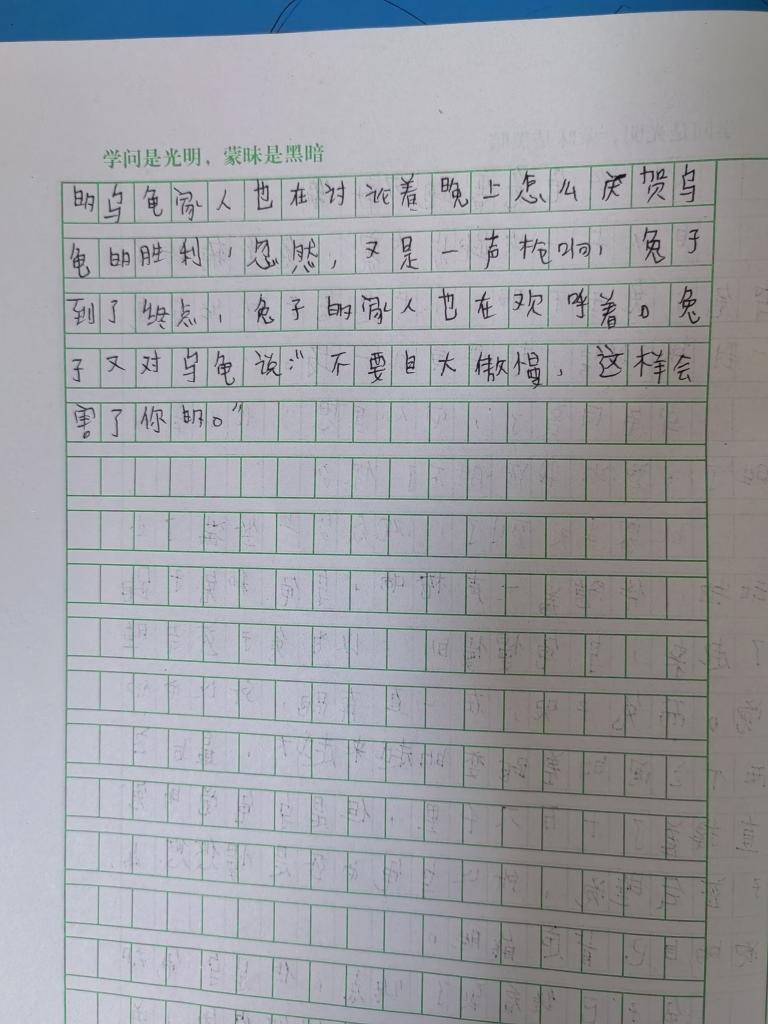 学问是光明，蒙昧是黑暗
的乌龟家人也在讨论着晚上怎么庆贺乌
龟的胜利，忽然，又是一声枪响，兔子
到了终点，兔子的家人也在欢呼着。兔
子又对乌龟说：“不要自大傲慢，这样会
害了你的。”